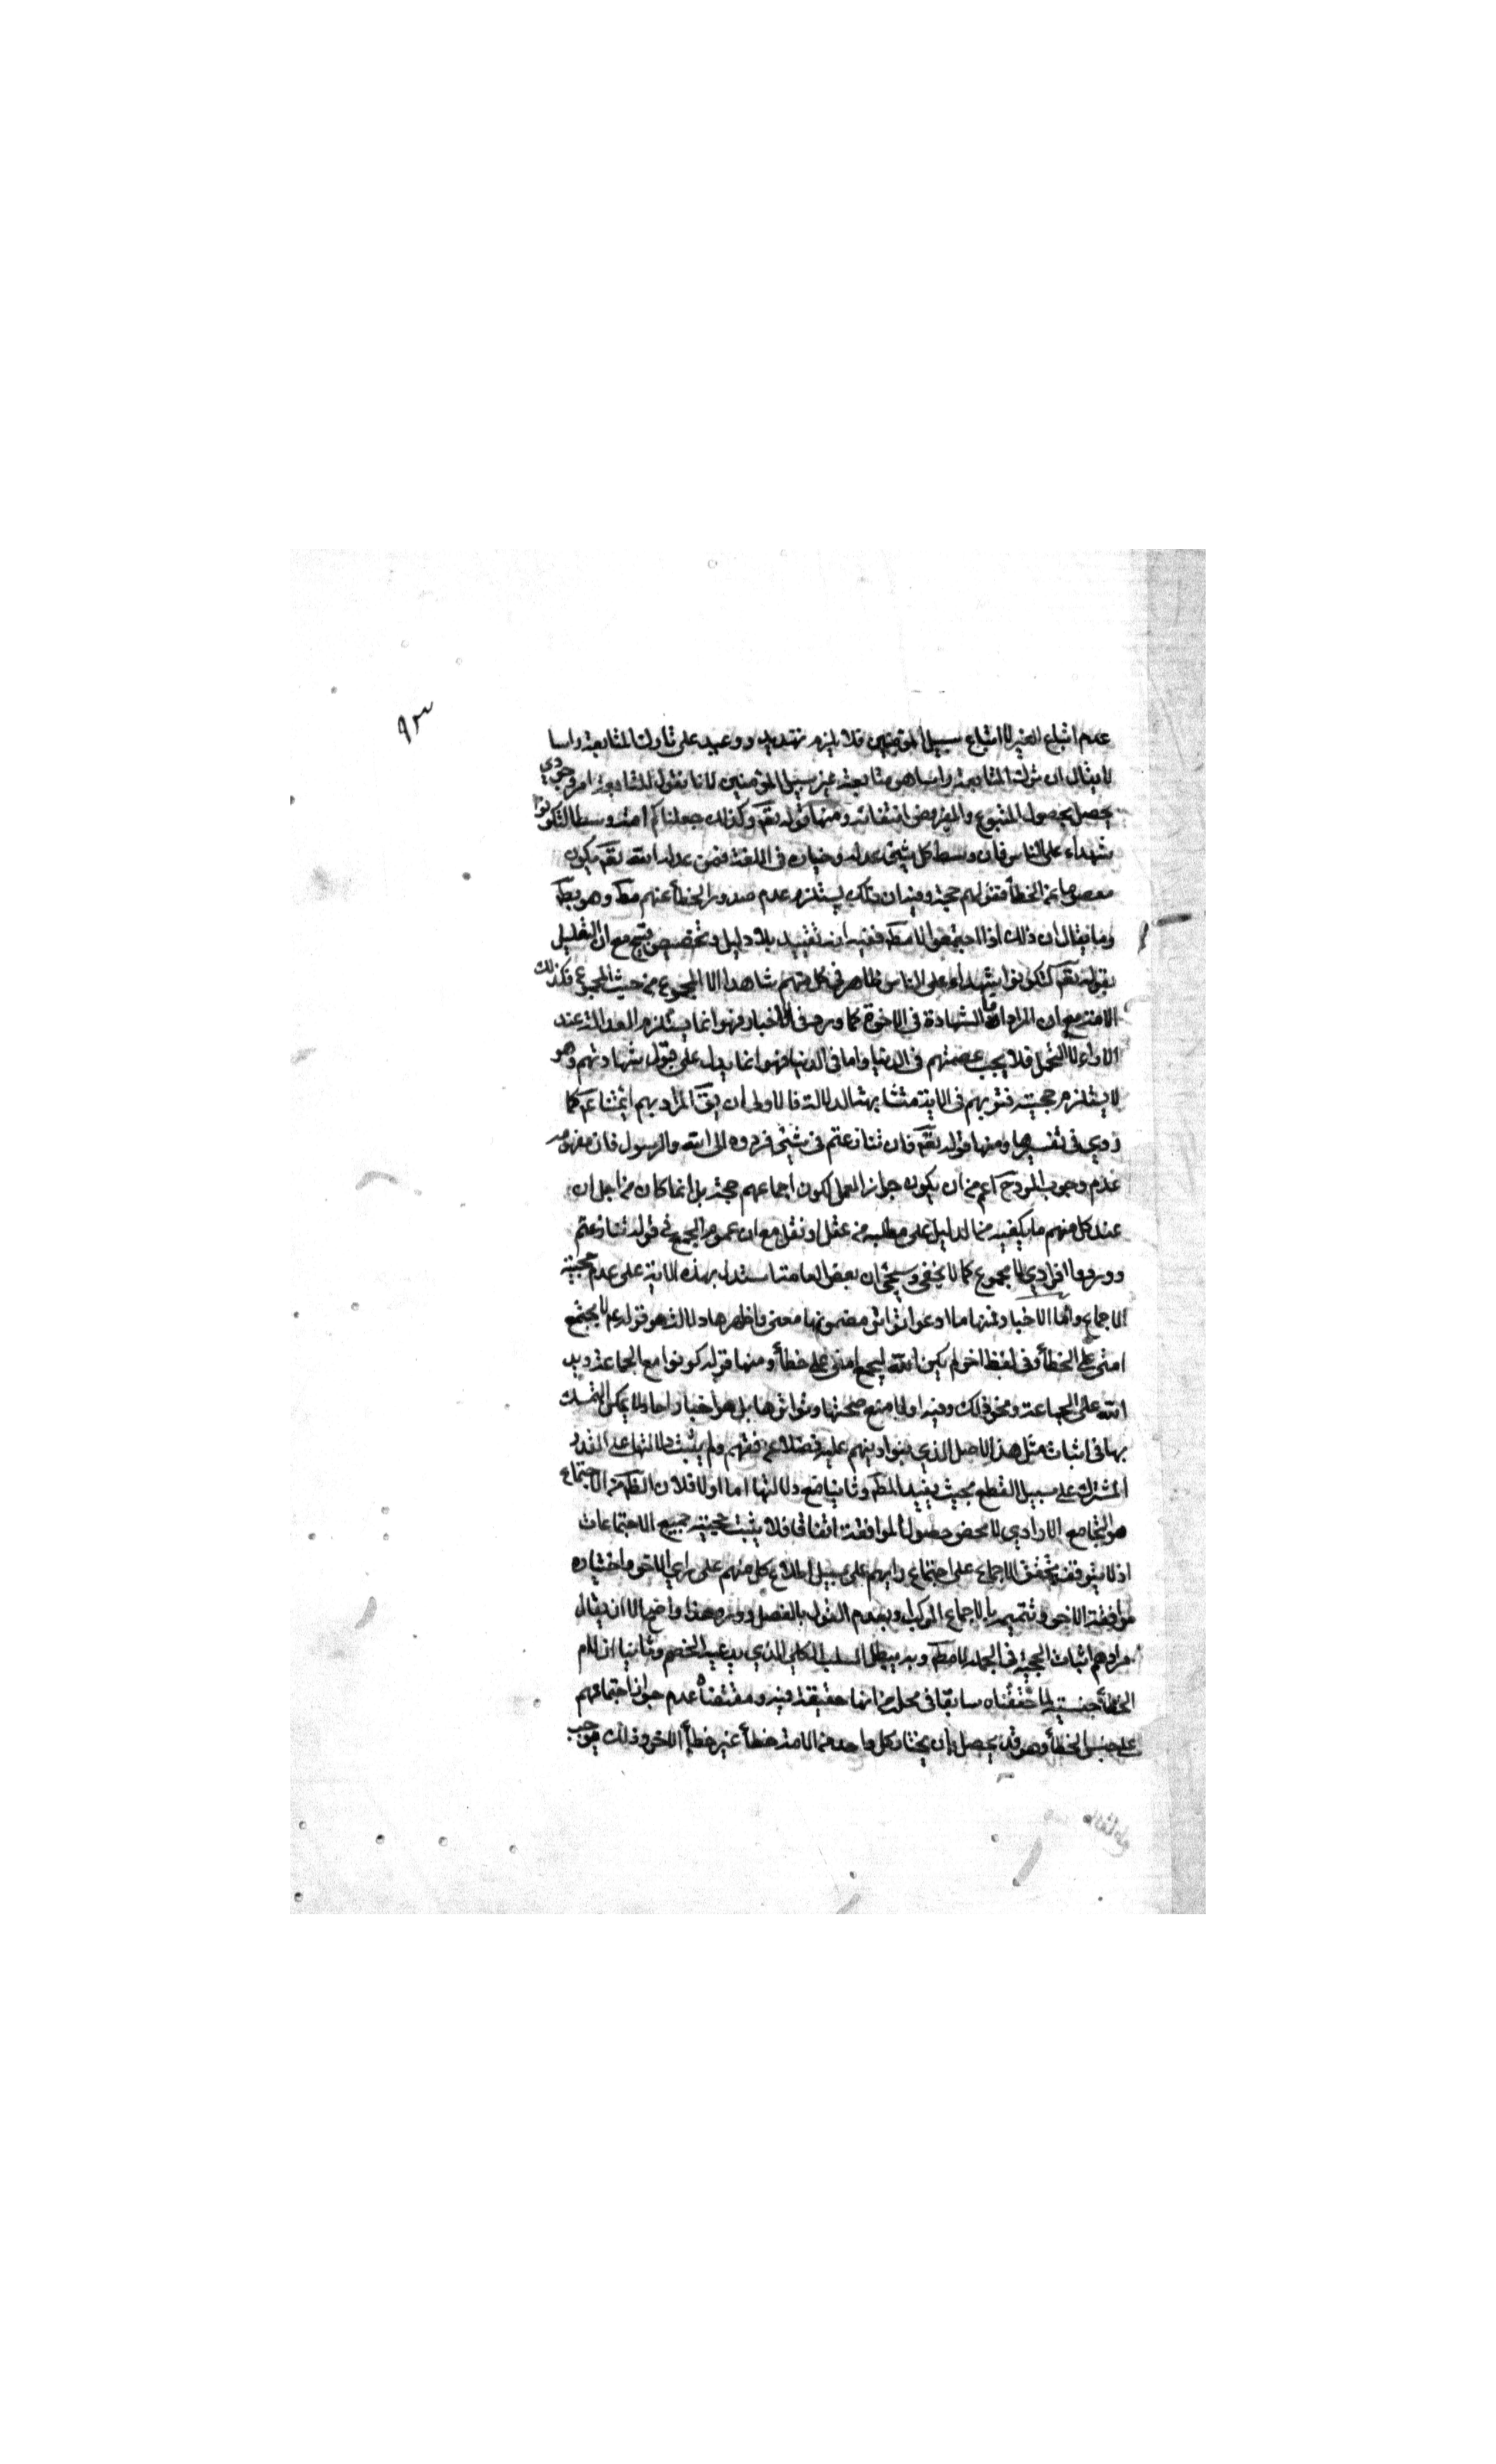 ٩٣
عدم اتباع الغير لا اتباع سبيل المؤمنين فلا يلزم تهديد ووعيد على تارك المتابعة راسا
لا يقال ان ترك المتابعة راسا هو متابعة غير سبيل المؤمنين لانا نقول المتابعة امر وجودي
يحصل بحصول المتبوع والمفروض انتفائه ومنها قوله تعم وكذلك جعلناكم امة وسطا لتكونوا
شهداء على الناس فان وسط كل شيئ عدله وخياره في اللغة فمن عدله الله تعم يكون
معصوما عن الخطأ فقولهم حجة وفيه ان ذلك يستلزم عدم صدور الخطأ عنهم مطه وهو بطه
وما يقال ان ذلك اذا اجتمعوا لا مطه ففيه انه تقييد بلا دليل وتخصيص قبيح مع ان التعليل
بقوله تعم لتكونوا شهداء على الناس ظاهر في كل منهم شاهدا لا المجموع من حيث المجموع فكذلك
الامة مع ان المراد اما الشهادة في الاخرة كما ورد في الاخبار فهو انما يستلزم العدالة عند
الاداء لا التحمل فلا يجب عصمتهم في الدنيا واما في الدنيا فهو انما يدل على قبول شهادتهم وهو
لا يستلزم حجية فتويهم في الاية متشابهة الدلالة فالاولى ان يق المراد بهم ائمتنا عم كما
روي في تفسيرها ومنها قوله تعم فان تنازعتم في شيئ فردوه الى الله والرسول فان مفهومه
عدم وجوب الرد ح اعم من ان يكون جواز العمل لكون اجماعهم حجة بل انما كان من اجل ان
عند كل منهم ما يكفيه من الدليل على مطلبه من عقل او نقل مع ان عموم الجمع في قوله تنازعتم
وردوا افرادي لا مجموع كما لا يخفى وسيجئ ان بعض العامة استدل بهذه الاية على عدم حجية
الاجماع واما الاخبار فمنها ما ادعوا تواتر مضمونها معنى واظهرها دلالة هو قوله عم لا يجتمع
امتي على الخطأ وفي لفظ اخر لم يكن الله ليجمع امتي على خطأ ومنها قوله كونوا مع الجماعة ويد
الله على الجماعة ونحو ذلك وفيه اولا منع صحتها وتواترها بل هو اخبار احاد لا يمكن التمسك
بها في اثبات مثل هذا الاصل الذي بنوا دينهم عليه فضلا عن فقههم ولم يثبت دلالتها على القدر
المشترك على سبيل القطع بحيث يفيد المطه وثانيا منع دلالتها اما اولا فلان الظه من الاجتماع
هو التجامع الارادي لا محض حصول الموافقة اتفاقا فلا يثبت حجية جميع الاجتماعات
اذ لا يتوقف تحقق الاجماع على اجتماع رايهم على سبيل اطلاع كل منهم على راي الاخر واختياره
موافقة الاخر وتتميمه بالاجماع المركب وبعدم القول بالفصل دوره هذا واضح الا ان يقال
مرادهم اثبات الحجية في الجملة لا مطه وبه يبطل السلب الكلي الذي يدعيه الخصم وثانيا ان لام
الخطأ جنسية لما حققناه سابقا في محله من انها حقيقة فيه ومقتضاه عدم جواز اجتماعهم
على جنس الخطأ وهو قد يحصل بان يختار كل واحد من الامة خطأ غير خطأ الاخر وذلك يوجب